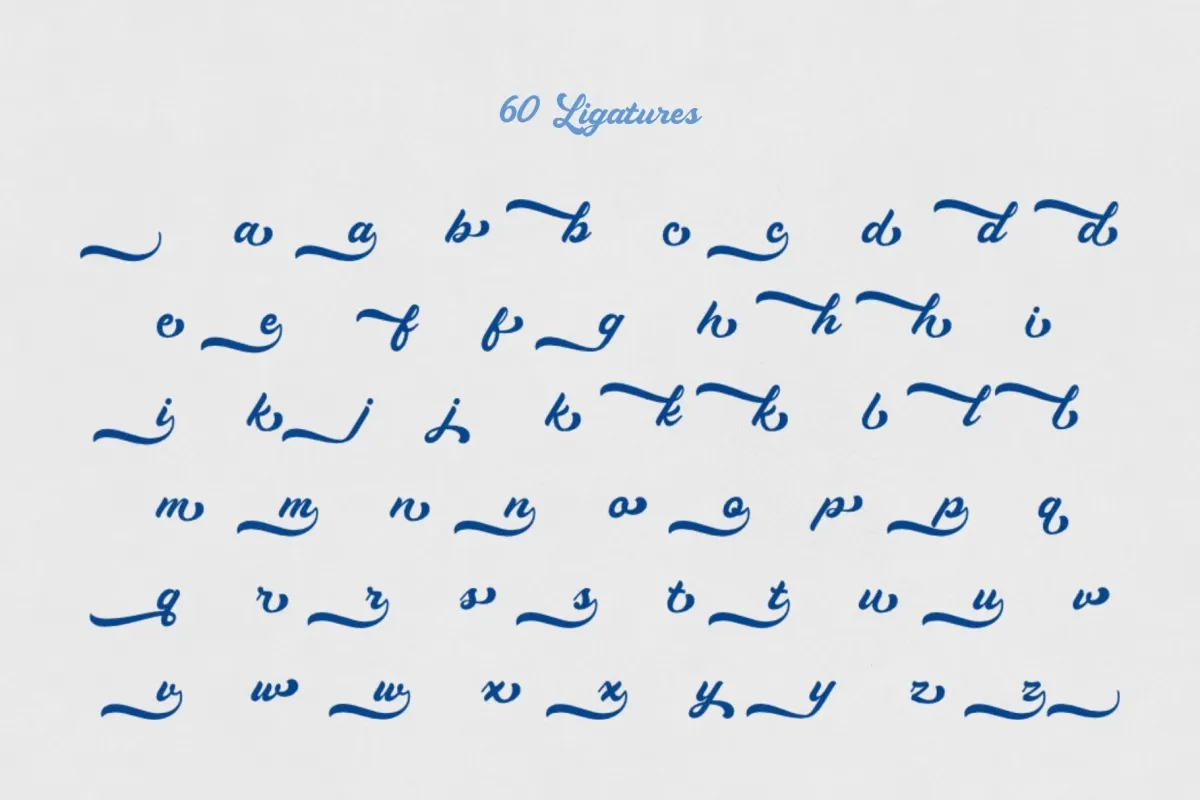 60 Ligatures
a a b b c c d d d
e e f f g h h h i
i k j j k k k l l l
m m n n o o p p q
q r r s s t t u u v
v w w x x y y z z